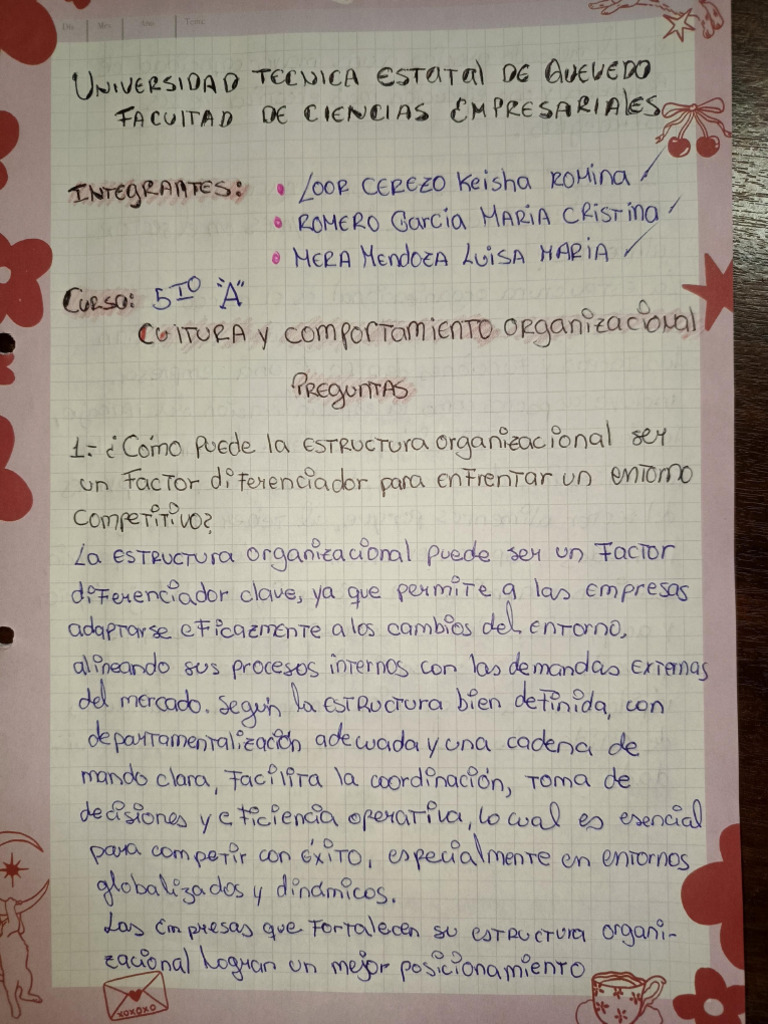 UNIVERSIDAD TECNICA ESTATAL DE QUEVEDO
FACULTAD DE CIENCIAS EMPRESARIALES
INTEGRANTES: • LOOR CEREZO Keisha ROMINA
• ROMERO Garcia MARIA CRISTINA
• MERA MENDOZA LUISA MARIA
CURSO: 5TO "A"
CULTURA y COMPORTAMIENTO ORGANIZACIONAL
PREGUNTAS
1.- ¿Cómo puede la ESTRUCTURA organizacional ser
un factor diferenciador para enfrentar un entorno
competitivo?
La ESTRUCTURA organizacional puede ser un factor
diferenciador clave, ya que permite a las empresas
adaptarse eficazmente a los cambios del entorno,
alineando sus procesos internos con las demandas externas
del mercado. Según la ESTRUCTURA bien definida, con
departamentalización adecuada y una cadena de
mando clara, facilita la coordinación, toma de
decisiones y eficiencia operativa, lo cual es esencial
para competir con éxito, especialmente en entornos
globalizados y dinámicos.
Las empresas que fortalecen su estructura organi-
zacional logran un mejor posicionamiento
xoxoxo